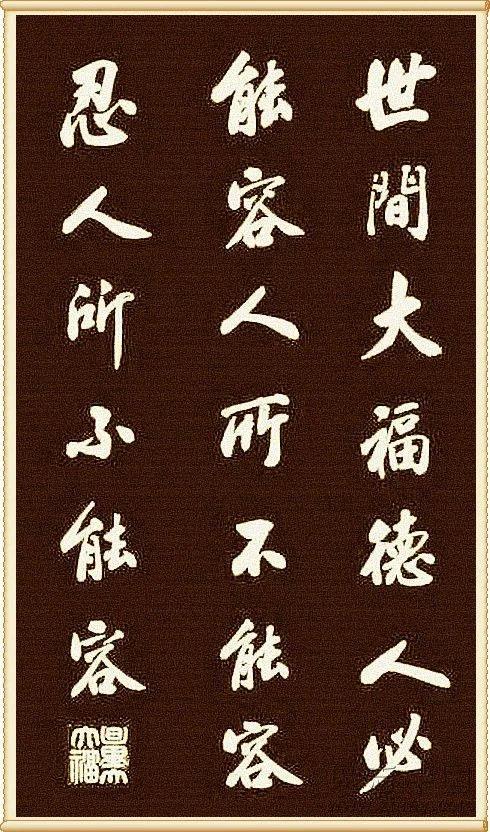 世間大福德人必
能容人所不能容
忍人所不能容